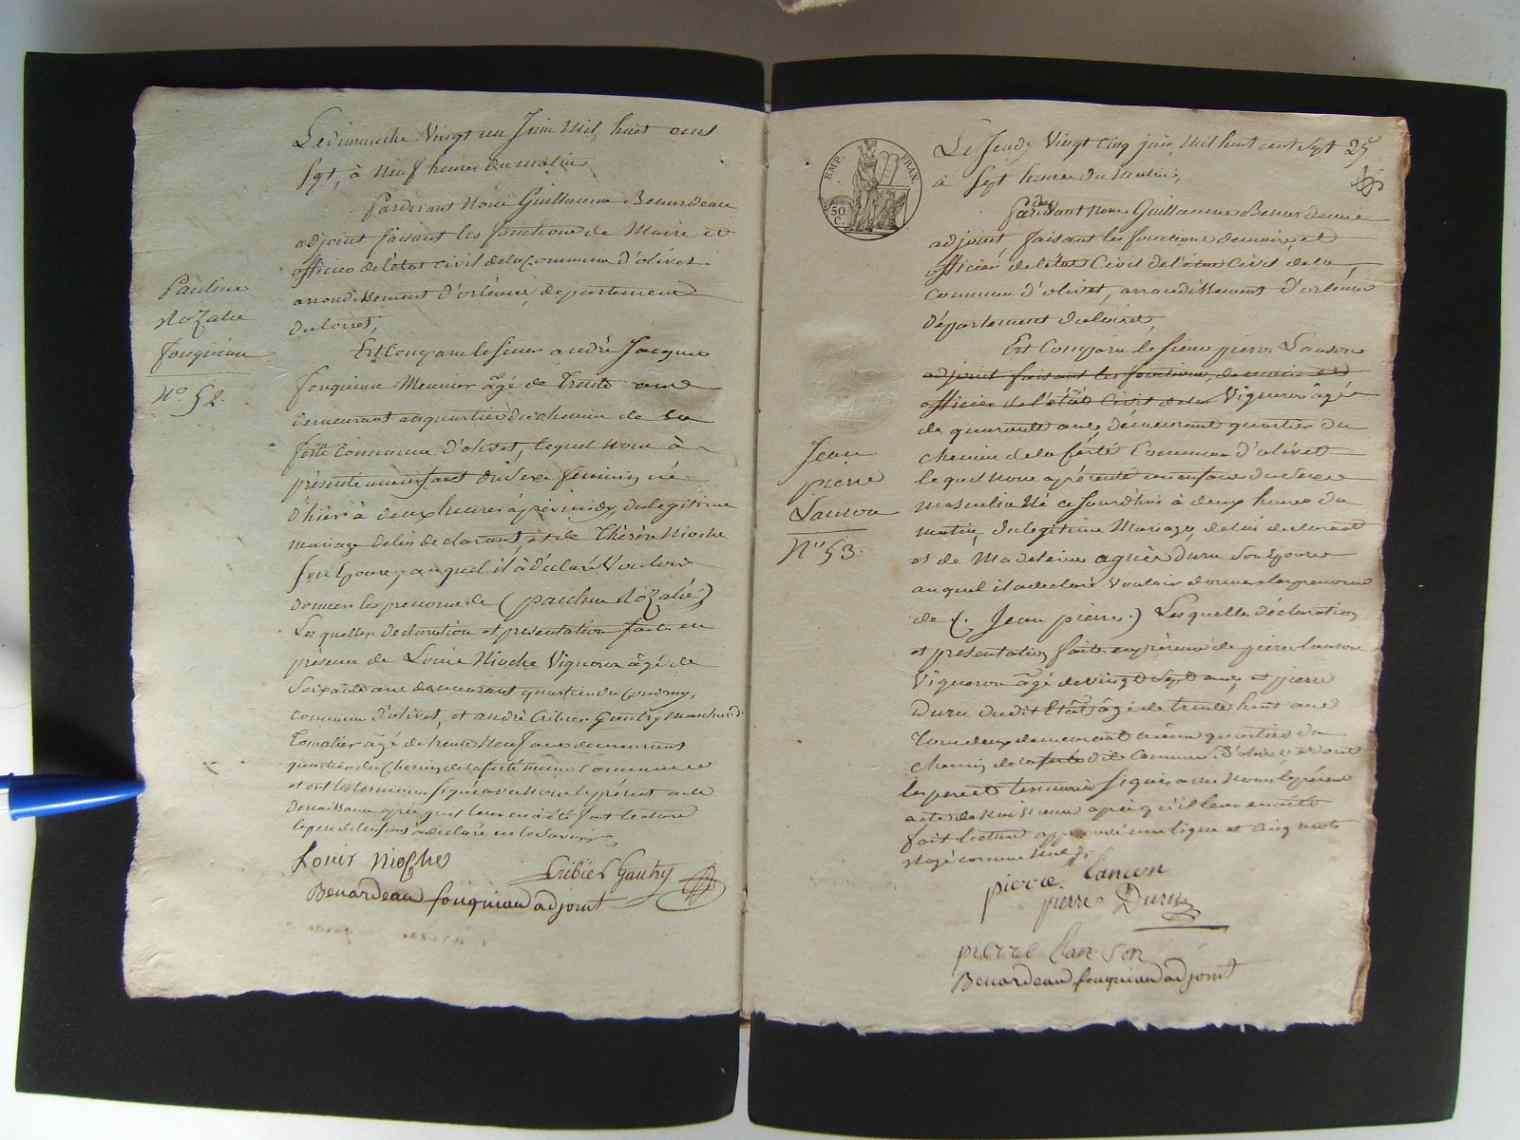 Le dimanche Vingt un Juin Mil huit cent
Sept, à Neuf heures du matin
Pardevant Nous Guillaume Benardeau
adjoint faisant les fonctions de Maire et
officier de l'état civil de la Commune d'olivet
arrondissement d'orléans, département
du loiret,
Est Comparu le sieur andré Jacque
fouqueau Meunier âgé de trente
demeurant au quartier du chemin de la
ferté Commune d'olivet, lequel nous à
présenté un enfant du sexe féminin, né
d'hier à deux heures après midy, du légitime
mariage de lui déclarant, et de Thérèse Nioche
son Epouse, auquel il à déclaré Vouloir
donner les prenoms de (pauline Rozalie)
Les quelles declaration et présentation faite en
présence de Louis Nioche Vigneron âgé de
Soixante ans demeurant quartier du
commune d'olivet, et andré Cribier Gautry marchand
Tonnelier âgé de trente Neuf ans demeurant
quartier du Chemin de la ferté même Commune
et ont les témoins signé avec Nous le présent acte
de naissance après qu'il leur en à été fait lecture
le pere de l'enfant à déclaré ne le Savoir
Louis Nioche
Cribier Gautry
Benardeau fouqueau adjoint
Pauline
Rozalie
fouqueau
N° 52.
EMP. FRAN.
50 C.
Le Jeudy Vingt Cinq juin Mil huit cent Sept 25
à Sept heures du matin,
Pardevant Nous Guillaume Benardeau
adjoint faisant les fonctions de maire et
officier de l'état Civil de l'état Civil de la
Commune d'olivet, arrondissement d'orleans
département du loiret
Est Comparu le sieur pierre Lanson
adjoint faisant les fonctions de maire et
officier de l'état Civil de la Vigneron âgé
de quarante ans, demeurant quartier du
chemin de la ferté Commune d'olivet
lequel nous a présenté un enfant du sexe
masculin Né ce jourdhui à deux heures du
matin, du legitime Mariage de lui declarant
et de Madeleine agnès Duru son Epouse
auquel il a declaré Vouloir donner les prenoms
de (Jean pierre) Les quelles déclaration
et présentation faite en présence de pierre lanson
Vigneron âgé de Vingt Sept ans, et pierre
Duru dudit Etat âgé de trente huit ans
Tous deux demeurant même quartier du
chemin de la ferté dite Commune d'olivet, et ont
les pere et temoins signé avec Nous le présent
acte de Naissance après qu'il leur en a été
fait lecture approuvé une ligne et cinq mots
rayé comme nul
pierre lanson
pierre Duru
pierre lanson
Benardeau fouqueau adjoint
Jean
pierre
Lanson
N° 53.